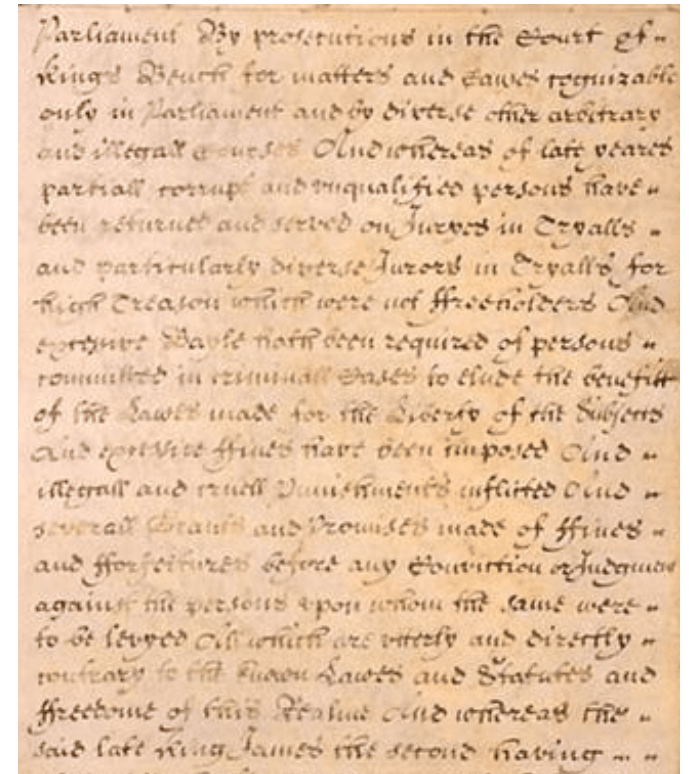 Parliament By prosecutions in the Court of
Kings Bench for matters and Causes cognizable
only in Parliament and by diverse other arbitrary
and illegall Courses And whereas of late yeares
partiall corrupt and unqualified persons have
been returned and served on Juryes in Tryalls
and particularly diverse Jurors in Tryalls for
high Treason which were not ffreeholders And
excessive Bayle hath been required of persons
committed in criminall Cases to elude the benefitt
of the Lawes made for the Liberty of the Subjects
And excessive ffines have been imposed And
illegall and cruell Punishments inflicted And
severall Grants and Promises made of ffines
and fforfeitures before any Conviction or Judgment
against the persons upon whom the same were
to be levyed All which are utterly and directly
contrary to the knowne Lawes and Statutes and
ffreedome of this Realme And whereas the
said late King James the second having